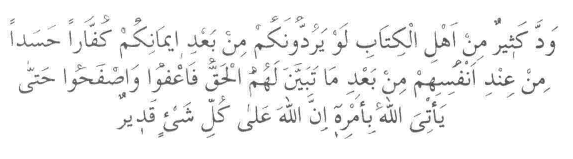 وَدَّ كَثِيرٌ مِنْ اَهْلِ الْكِتَابِ لَوْ يَرُدُّونَكُمْ مِنْ بَعْدِ اِيمَانِكُمْ كُفَّاراً حَسَداً
مِنْ عِنْدِ اَنْفُسِهِمْ مِنْ بَعْدِ مَا تَبَيَّنَ لَهُمُ الْحَقُّ فَاعْفُوا وَاصْفَحُوا حَتّٰى
يَأْتِىَ اللّٰهُ بِأَمْرِهِٓ اِنَّ اللّٰهَ عَلٰى كُلِّ شَىْءٍ قَدِيرٌ